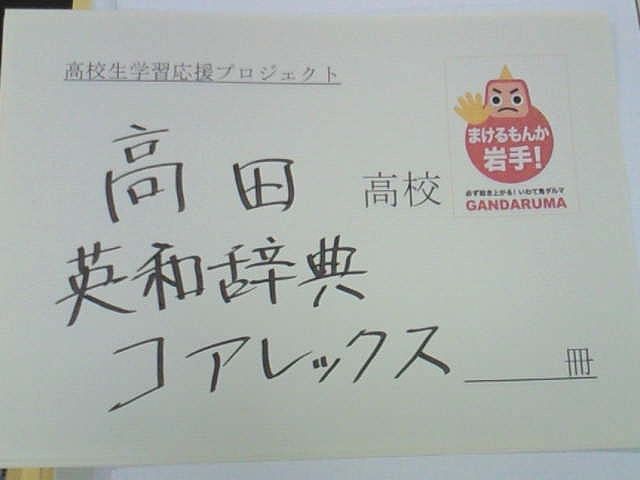 高校生学習応援プロジェクト
まけるもんか
岩手!
必ず起き上がる!いわて鬼ダルマ
GANDARUMA
高田 高校
英和辞典
コアレックス 冊